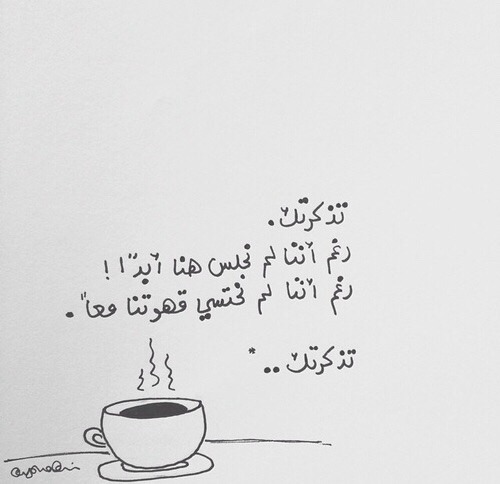 تذكرتك.
رغم أننا لم نجلس هنا أبدًا !
رغم أننا لم نحتسي قهوتنا معاً.
تذكرتك .. *